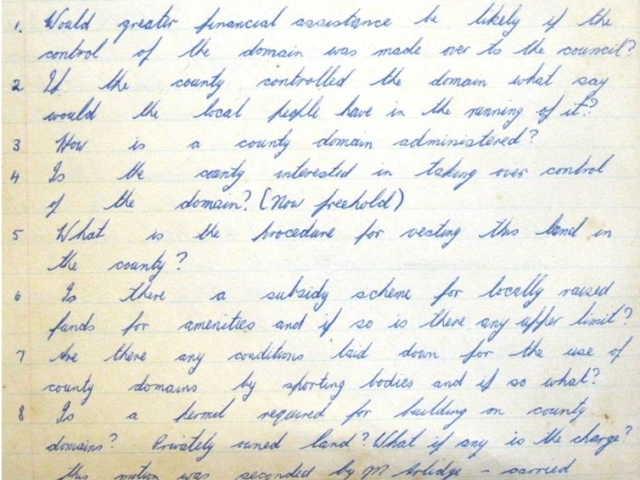 1. Would greater financial assistance be likely if the
control of the domain was made over to the council?
2 If the county controlled the domain what say
would the local people have in the running of it?
3 How is a county domain administered?
4 Is the county interested in taking over control
of the domain? (Now freehold)
5 What is the procedure for vesting this land in
the county?
6 Is there a subsidy scheme for locally raised
funds for amenities and if so is there any upper limit?
7 Are there any conditions laid down for the use of
county domains by sporting bodies and if so what?
8 Is a permit required for building on county
domains? Privately owned land? What if any is the charge?
this motion was seconded by M Arlidge - carried